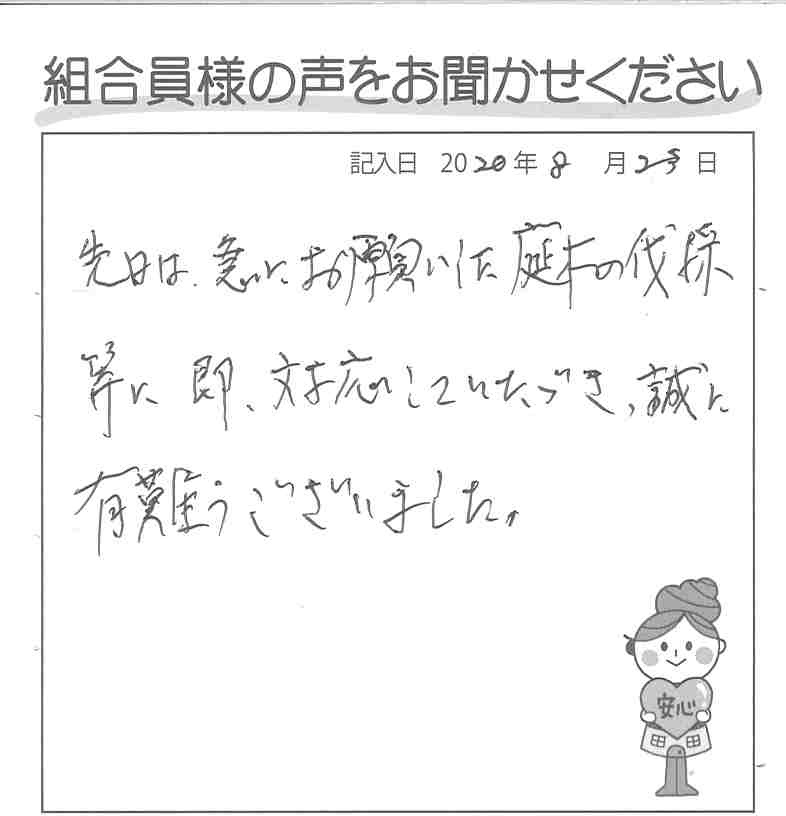 組合員様の声をお聞かせください
記入日 2020年8月25日
先日は、急にお願いした庭木の伐採
等に即、対応していただき、誠に
有難うございました。
安心